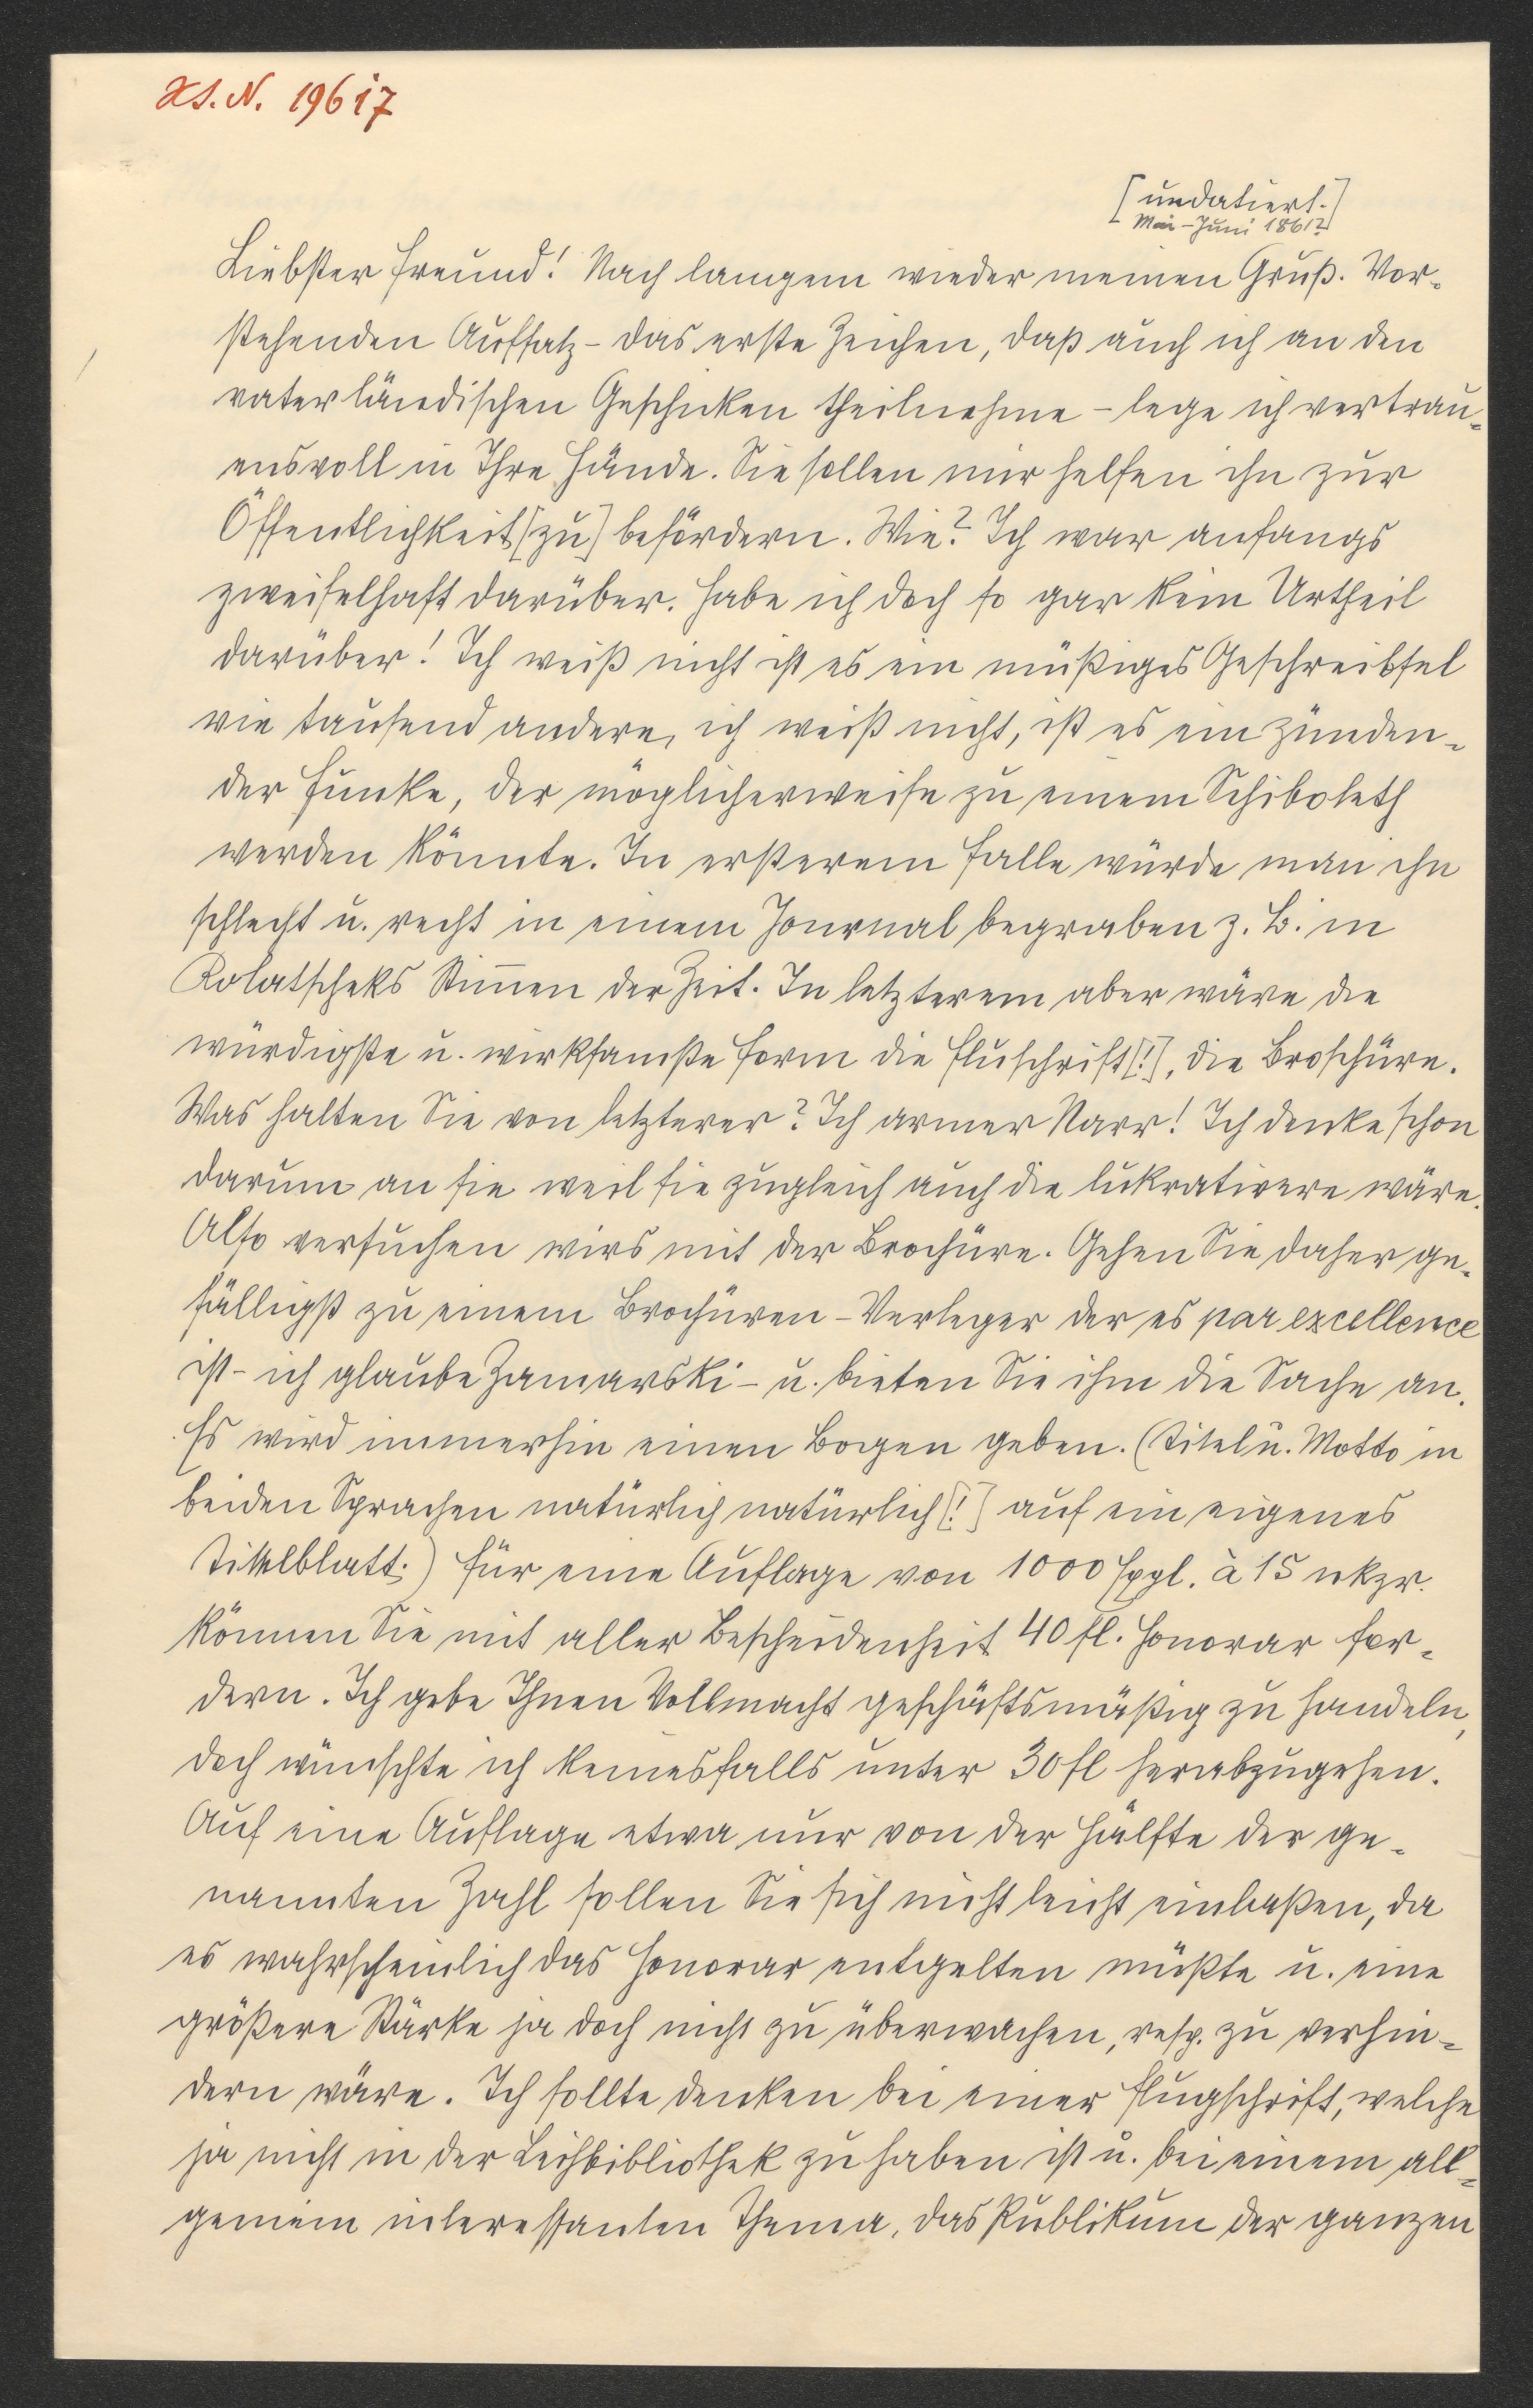 H.I.N. 19617
[undatiert.]
Mai-Juni 1861?
Liebster Freund! Nach langem wieder meinen Gruß. Vor-
stehenden Aufsatz – das erste Zeichen, daß auch ich an den
vaterländischen Geschicken theilnehme – lege ich vertrau-
ensvoll in Ihre Hände. Sie sollen mir helfen ihn zur
Öffentlichkeit [zu] befördern. Wie? Ich war anfangs
zweifelhaft darüber. Habe ich doch so gar kein Urtheil
darüber! Ich weiß nicht ist es ein müßiges Geschreibsel
wie tausend andere, ich weiß nicht, ist es ein zünden-
der Funke, der möglicherweise zu einem Schiboleth
werden könnte. In ersterem Falle würde man ihn
schlecht u. recht in einem Journal begraben z. B. in
Kolatscheks Stim̄en der Zeit. In letzterem aber wäre die
würdigste u. wirksamste Form die Fluschrift [!], die Broschüre.
Was halten Sie von letzterer? Ich armer Narr! Ich denke schon
darum an sie weil sie zugleich auch die lukrativere wäre.
Also versuchen wirs mit der Brochüre. Gehen Sie daher ge-
fälligst zu einem Brochüren-Verleger der es par excellence
ist – ich glaube Zamarski – u. bieten Sie ihm die Sache an.
Es wird immerhin einen Bogen geben. (Titel u. Motto in
beiden Sprachen natürlich natürlich [!] auf ein eigenes
Titelblatt.) Für eine Auflage von 1000 Expl. à 15 nkzr.
können Sie mit aller Bescheidenheit 40 fl. Honorar for-
dern. Ich gebe Ihnen Vollmacht geschäftsmäßig zu handeln,
doch wünschte ich keinesfalls unter 30 fl herabzugehen.
Auf eine Auflage etwa nur von der Hälfte der ge-
nannten Zahl sollen Sie sich nicht leicht einlaßen, da
es wahrscheinlich das Honorar entgelten müßte u. eine
größere Stärke ja doch nicht zu überwachen, resp. zu verhin-
dern wäre. Ich sollte denken bei einer Flugschrift, welche
ja nicht in der Leihbibliothek zu haben ist u. bei einem all-
gemein interessanten Thema, das Publikum der ganzen